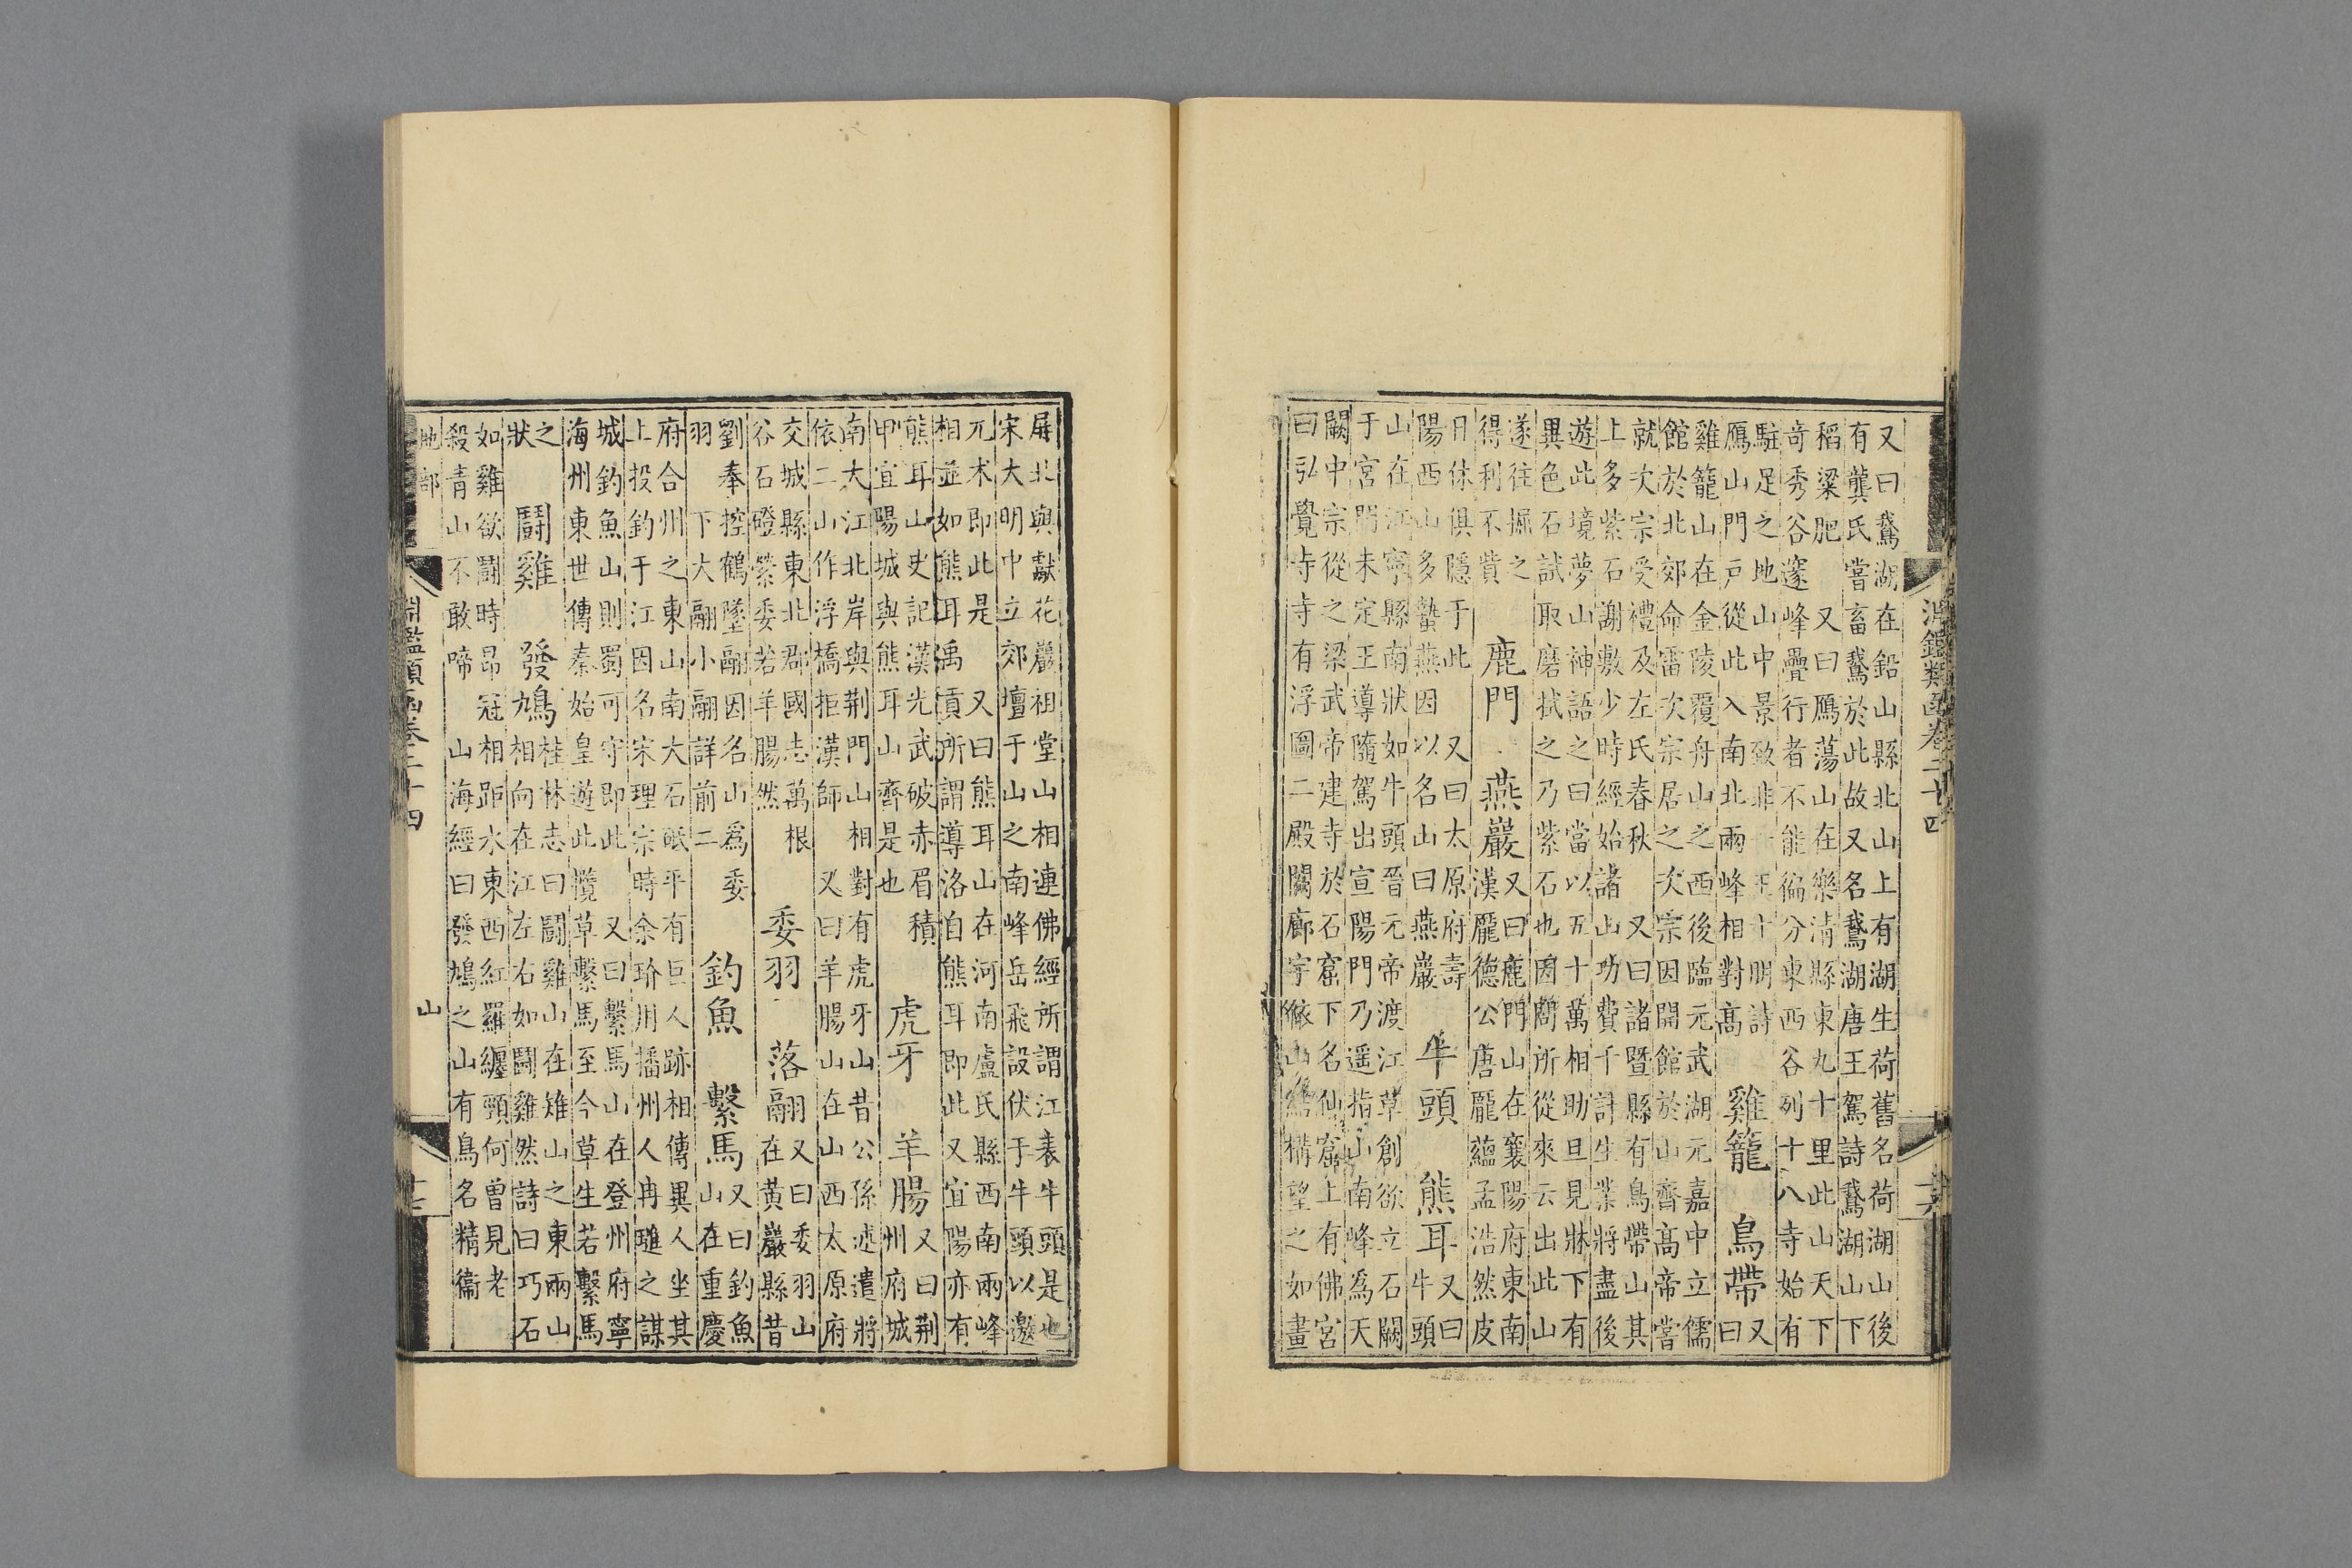 淵鑑類函卷二十四
十六
又曰鵞湖在鉛山縣北山上有湖生荷舊名荷湖山後
有龔氏嘗畜鵞於此故又名鵞湖唐王駕詩鵞湖山下
稻粱肥 又曰鴈蕩山在樂清縣東九十里此山天下
奇秀谷邃峰疊行者不能徧分東西谷列十八寺始有
駐足之地山中景致非一王十朋詩
鴈山門戶從此入南北兩峰相對高
雞籠 鳥帶
又
曰
雞籠山在金陵覆舟山之西後臨元武湖元嘉中立儒
館於北郊命雷次宗居之次宗因開館於山齊高帝嘗
就次宗受禮及左氏春秋 又曰諸暨縣有鳥帶山其
上多紫石謝敷少時經始諸山功費千計生業將盡後
遊此境夢山神語之曰當以五十萬相助旦見牀下有
異色石試取磨拭之乃紫石也因問所從來云出此山
遂往掘之
得利不貲
鹿門 燕巖
又曰鹿門山在襄陽府東南
漢龐德公唐龐蘊孟浩然皮
日休俱隱于此 又曰太原府壽
陽西山多蟄燕因以名山曰燕巖
牛頭 熊耳
又曰
牛頭
山在江寧縣南狀如牛頭晉元帝渡江草創欲立石闕
于宮門未定王導隨駕出宣陽門乃遥指山南峰為天
闕中宗從之梁武帝建寺於石窟下名仙窟上有佛宮
曰弘覺寺寺有浮圖二殿闕廊宇依山結構望之如畫
屏北與獻花巖祖堂山相連佛經所謂江表牛頭是也
宋大明中立郊壇于山之南峰岳飛設伏于牛頭以邀
兀术即此是 又曰熊耳山在河南盧氏縣西南兩峰
相並如熊耳禹貢所謂導洛自熊耳即此又宜陽亦有
熊耳山史記漢光武破赤眉積
甲宜陽城與熊耳山齊是也
虎牙 羊腸
又曰荆
州府城
南大江北岸與荆門山相對有虎牙山昔公孫述遣將
依二山作浮橋拒漢師 又曰羊腸山在山西太原府
交城縣東北郡國志萬根
谷石磴縈委若羊腸然
委羽 落翮
又曰委羽山
在黄巖縣昔
劉奉控鶴墜翮因名山為委
羽 下大翮小翮詳前二
釣魚 繫馬
又曰釣魚
山在重慶
府合州之東山南大石砥平有巨人跡相傳異人坐其
上投釣于江因名宋理宗時余玠用播州人冉璡之謀
城釣魚山則蜀可守即此 又曰繫馬山在登州府寧
海州東世傳秦始皇遊此攬草繫馬至今草生若繫馬
之
狀
鬬雞 發鳩
桂林志曰鬬雞山在雉山之東兩山
相向在江左右如鬬雞然詩曰巧石
如雞欲鬬時昂冠相距水東西紅羅纏頸何曾見老
殺青山不敢啼 山海經曰發鳩之山有鳥名精衞
地部 山
淵鑑類函卷二十四
十七